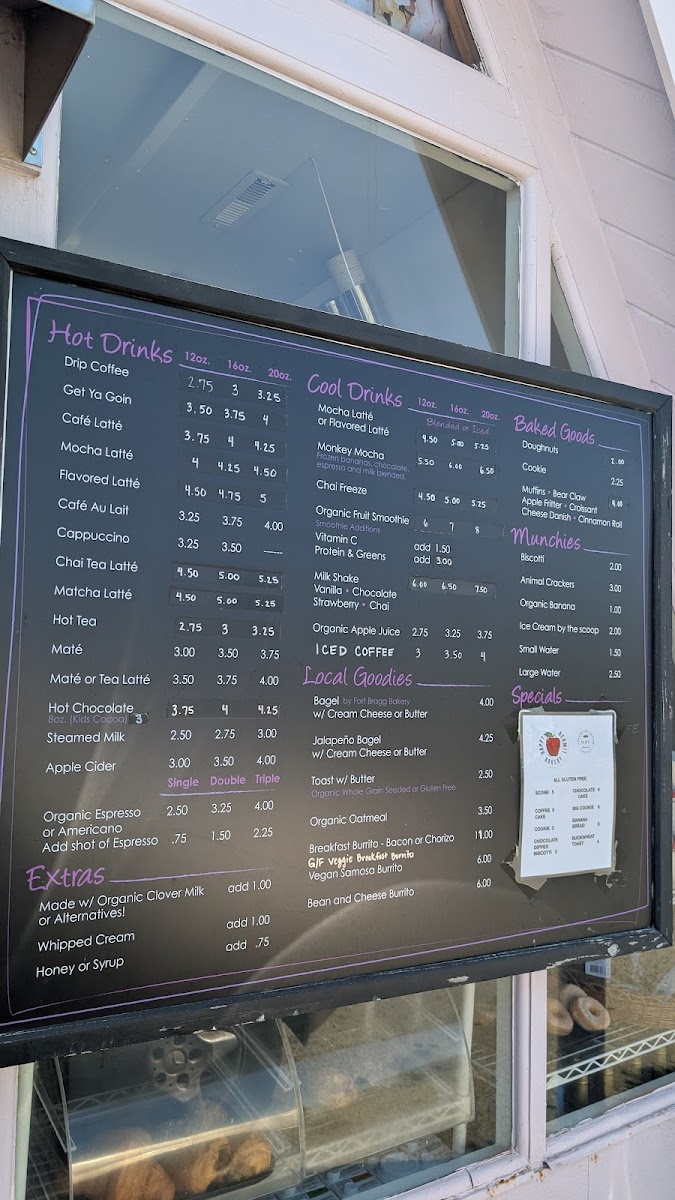 Hot Drinks 12oz. 16oz. 20oz.
Drip Coffee 2.75 3 3.25
Get Ya Goin 3.50 3.75 4
Café Latté 3.75 4 4.25
Mocha Latté 4 4.25 4.50
Flavored Latté 4.50 4.75 5
Café Au Lait 3.25 3.75 4.00
Cappuccino 3.25 3.50 —
Chai Tea Latté 4.50 5.00 5.25
Matcha Latté 4.50 5.00 5.25
Hot Tea 2.75 3 3.25
Maté 3.00 3.50 3.75
Maté or Tea Latté 3.50 3.75 4.00
Hot Chocolate 3.75 4 4.25
8oz. (Kids Cocoa) 3
Steamed Milk 2.50 2.75 3.00
Apple Cider 3.00 3.50 4.00
Single Double Triple
Organic Espresso 2.50 3.25 4.00
or Americano
Add shot of Espresso .75 1.50 2.25
Extras
Made w/ Organic Clover Milk add 1.00
or Alternatives!
Whipped Cream add 1.00
Honey or Syrup add .75
Cool Drinks 12oz. 16oz. 20oz.
Blended or Iced
Mocha Latté
or Flavored Latté 4.50 5.00 5.25
Monkey Mocha 5.50 6.00 6.50
Frozen bananas, chocolate,
espresso and milk blended.
Chai Freeze 4.50 5.00 5.25
Organic Fruit Smoothie 6 7 8
Smoothie Additions
Vitamin C add 1.50
Protein & Greens add 3.00
Milk Shake 6.00 6.50 7.50
Vanilla • Chocolate
Strawberry • Chai
Organic Apple Juice 2.75 3.25 3.75
ICED COFFEE 3 3.50 4
Local Goodies
Bagel by Fort Bragg Bakery 4.00
w/ Cream Cheese or Butter
Jalapeño Bagel 4.25
w/ Cream Cheese or Butter
Toast w/ Butter 2.50
Organic Whole Grain Seeded or Gluten Free
Organic Oatmeal 3.50
Breakfast Burrito - Bacon or Chorizo 11.00
G/F Veggie Breakfast Burrito
Vegan Samosa Burrito 6.00
Bean and Cheese Burrito 6.00
Baked Goods
Doughnuts 2.00
Cookie 2.25
Muffins • Bear Claw
Apple Fritter • Croissant 4.00
Cheese Danish • Cinnamon Roll
Munchies
Biscotti 2.00
Animal Crackers 3.00
Organic Banana 1.00
Ice Cream by the scoop 2.00
Small Water 1.50
Large Water 2.50
Specials
BAKERY
ALL GLUTEN FREE
SCONE 5
COFFEE CAKE
COOKIE
CHOCOLATE DIPPED BISCOTTI
CHOCOLATE CAKE
BIG COOKIE
BANANA BREAD
BUCKWHEAT TOAST